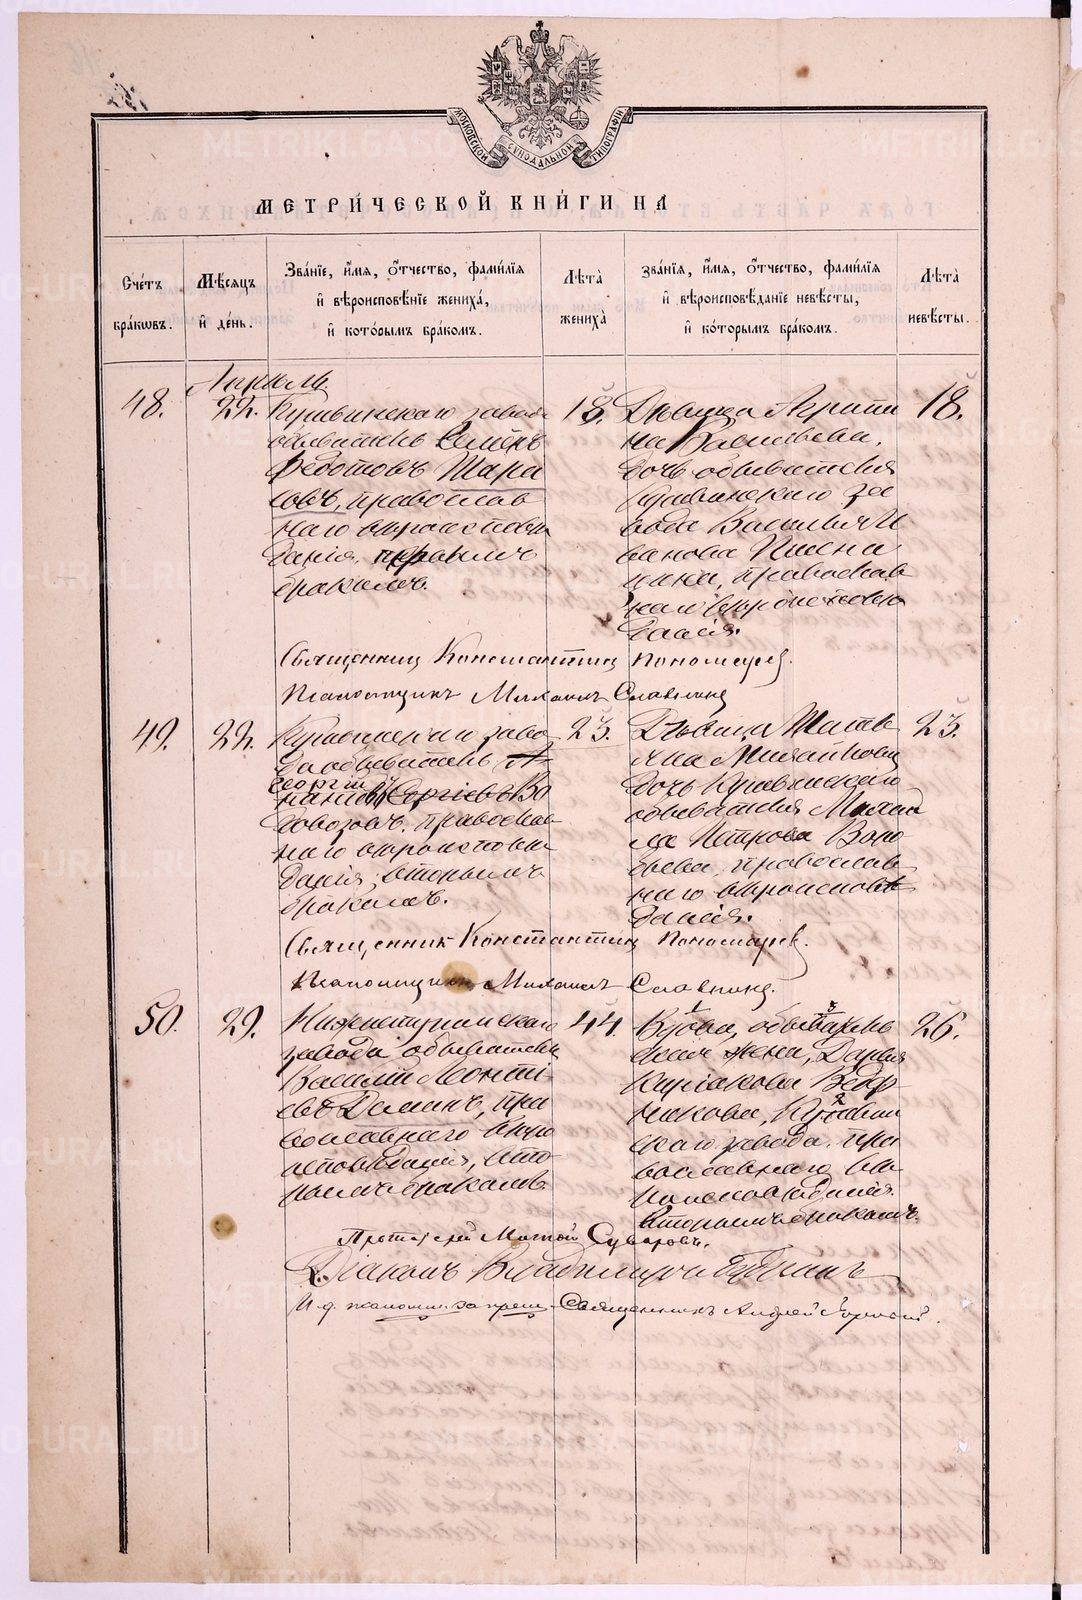 МОСКОВСКОЙ СѴНОДАЛЬНОЙ ТИПОГРАФІИ
МЕТРИ́ЧЕСКОЙ КНИ́ГИ НА
Сче́тъ бра́ковъ.
Мѣ́сяцъ и҆ де́нь.
Зва́нїе, и҆́мя, ѻ҆́тчество, фами́лїя и҆ вѣроисповѣ́нїе жениха́, и҆ кото́рымъ бра́комъ.
Лѣта̀ жениха̀
зва́нїя, и҆́мя, ѻ҆́тчество, фами́лїя и҆ вѣроисповѣ́данїе невѣ́сты, и҆ ко́торымъ бра́комъ.
Лѣта̀ невѣ́сты.
Апрѣль.
48.
22.
Кушвинскаго завода
обыватель Семенъ
Федотовъ Тара
совъ, православ
наго вѣроисповѣ
данія, первымъ
бракомъ.
18.
Дѣвица Агрипи
на Васильева,
дочь обывателя
Кушвинскаго за
вода Василья И
ванова
православ
наго вѣроисповѣ
данія.
18.
Священникъ Константинъ Пономаревъ.
Псаломщикъ Михаилъ Славнинъ
49.
22.
Кушвинскаго заво
да обыватель
Георгій
Во
довозовъ, православ
наго вѣроисповѣ
данія, вторымъ
бракомъ.
23.
Дѣвица Татья
на Михайлова
дочь Кушвинскаго
обывателя Михаи
ла Петрова Воро
бьева, православ
наго вѣроисповѣ
данія.
23.
Священникъ Константинъ Пономаревъ.
Псаломщикъ Михаилъ Славнинъ.
50.
29.
Нижнетуринскаго
завода обыватель
Василій Леонті
евъ Деминъ, пра
вославнаго вѣро
исповѣданія, вто
рымъ бракомъ
44.
Вдова, обыватель
ская жена, Дарья
Кирьякова Ведер
никова, Кушвин
скаго завода, пра
вославнаго вѣ
роисповѣданія.
Вторымъ бракомъ.
26.
Протоіерей Матѳій Суворовъ.
Діаконъ Владимиръ
И. д. псаломщ. запрещ. Священникъ Андрей